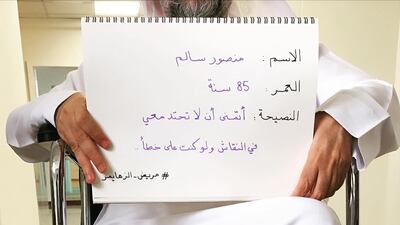 الاسم : منصور سالم
العمر : 85 سنة
النصيحة : أتمنى أن لا تحتد معي
في النقاش ولو كنت على خطأ ..
#مريض_الزهايمر